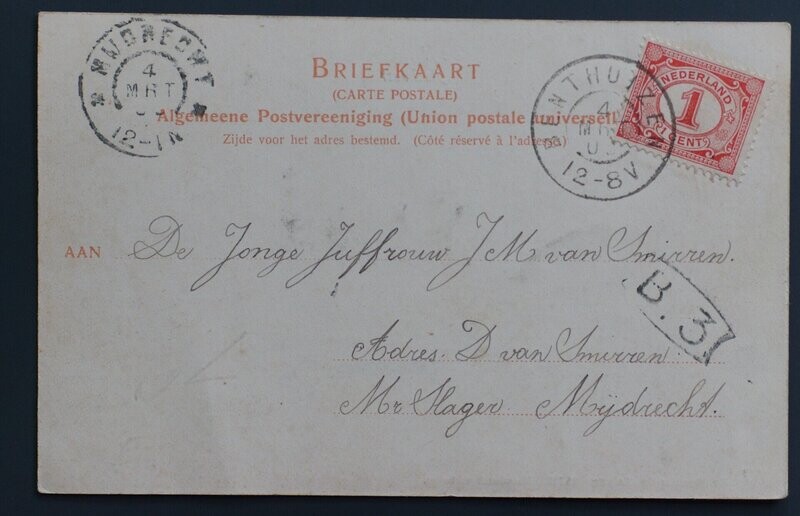 MIJDRECHT
4
MRT
12-1N
BRIEFKAART
(CARTE POSTALE)
Algemeene Postvereeniging (Union postale universelle)
Zijde voor het adres bestemd. (Côté réservé à l'adresse)
BENTHUIZEN
4
MRT
0
12-8V
NEDERLAND
1
CENT
AAN De Jonge Juffrouw J M van Smirren.
B. 3
Adres. D van Smirren.
Mr Slager Mijdrecht.